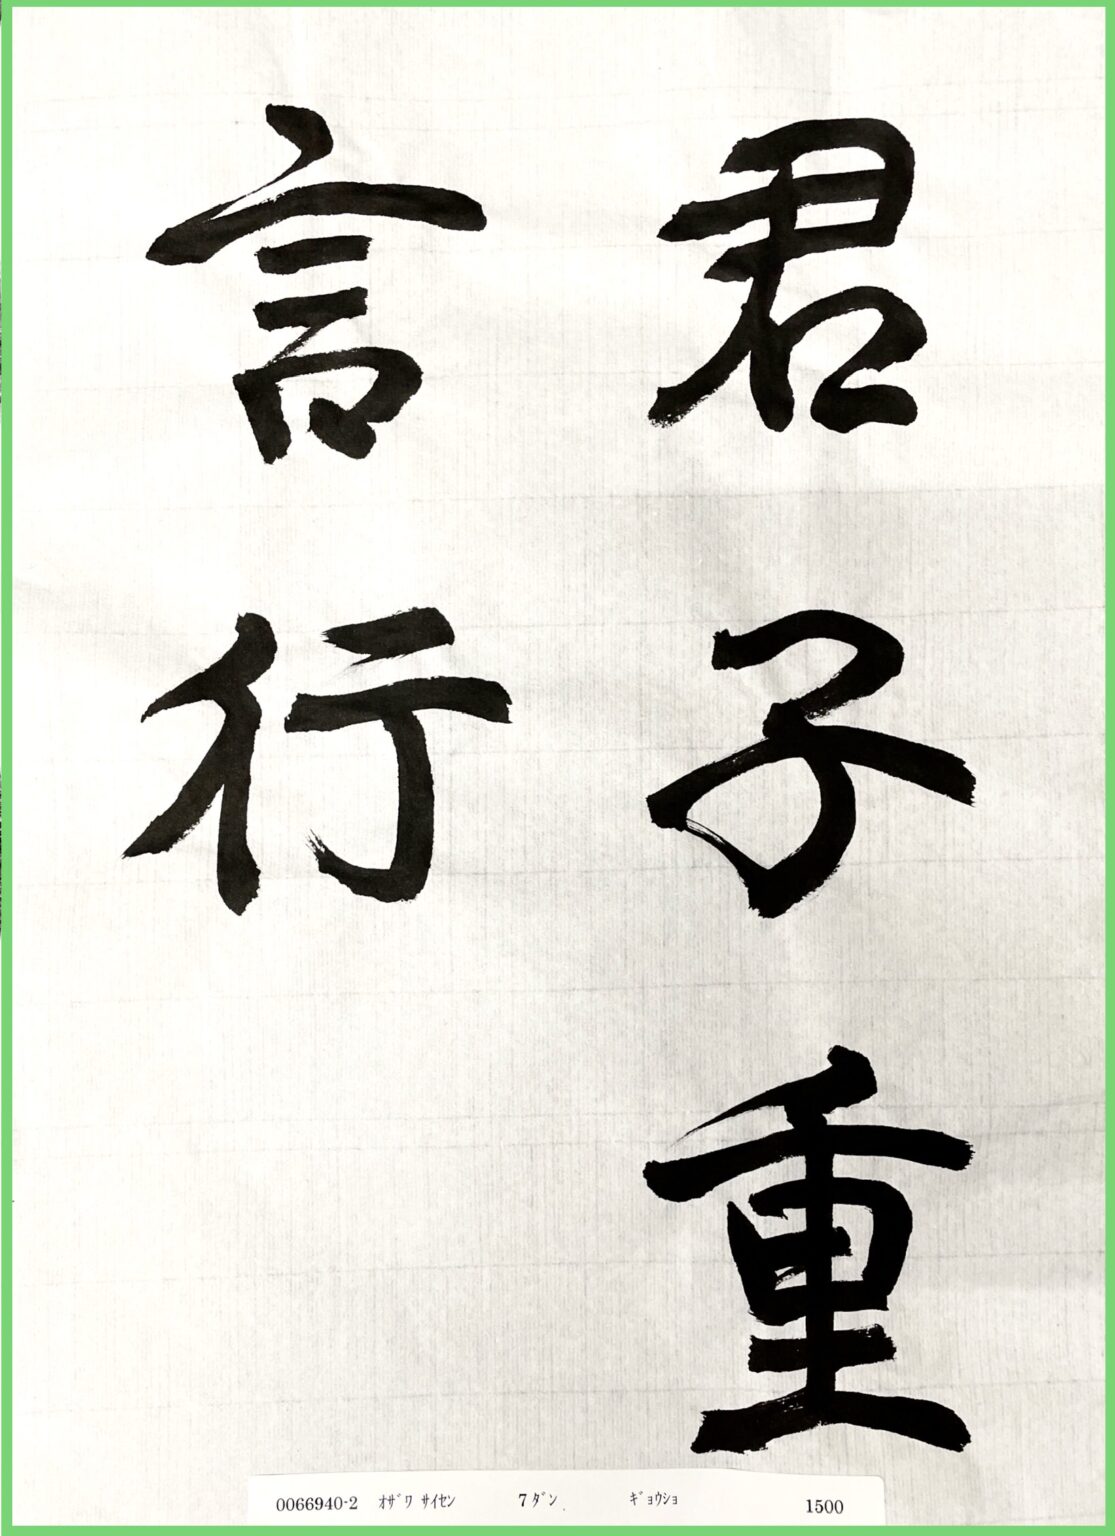 君子重
言行
0066940-2 ｵｻﾞﾜ ｻｲｾﾝ 7ﾀﾞﾝ ｷﾞｮｳｼｮ 1500